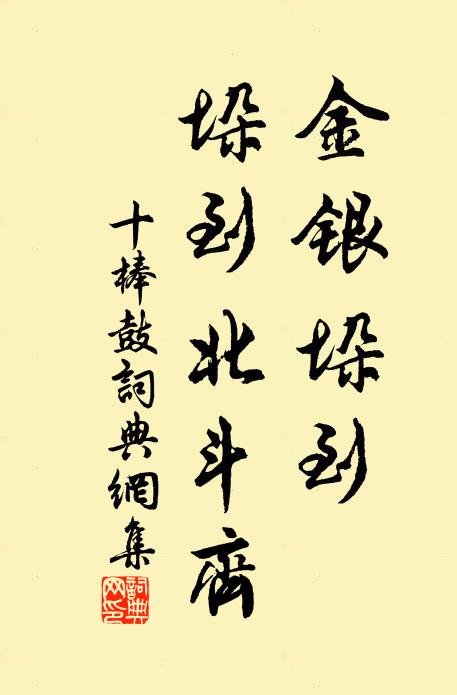 金银垛到
垛到北斗齊
十棒鼓詞典網集
詞典网印